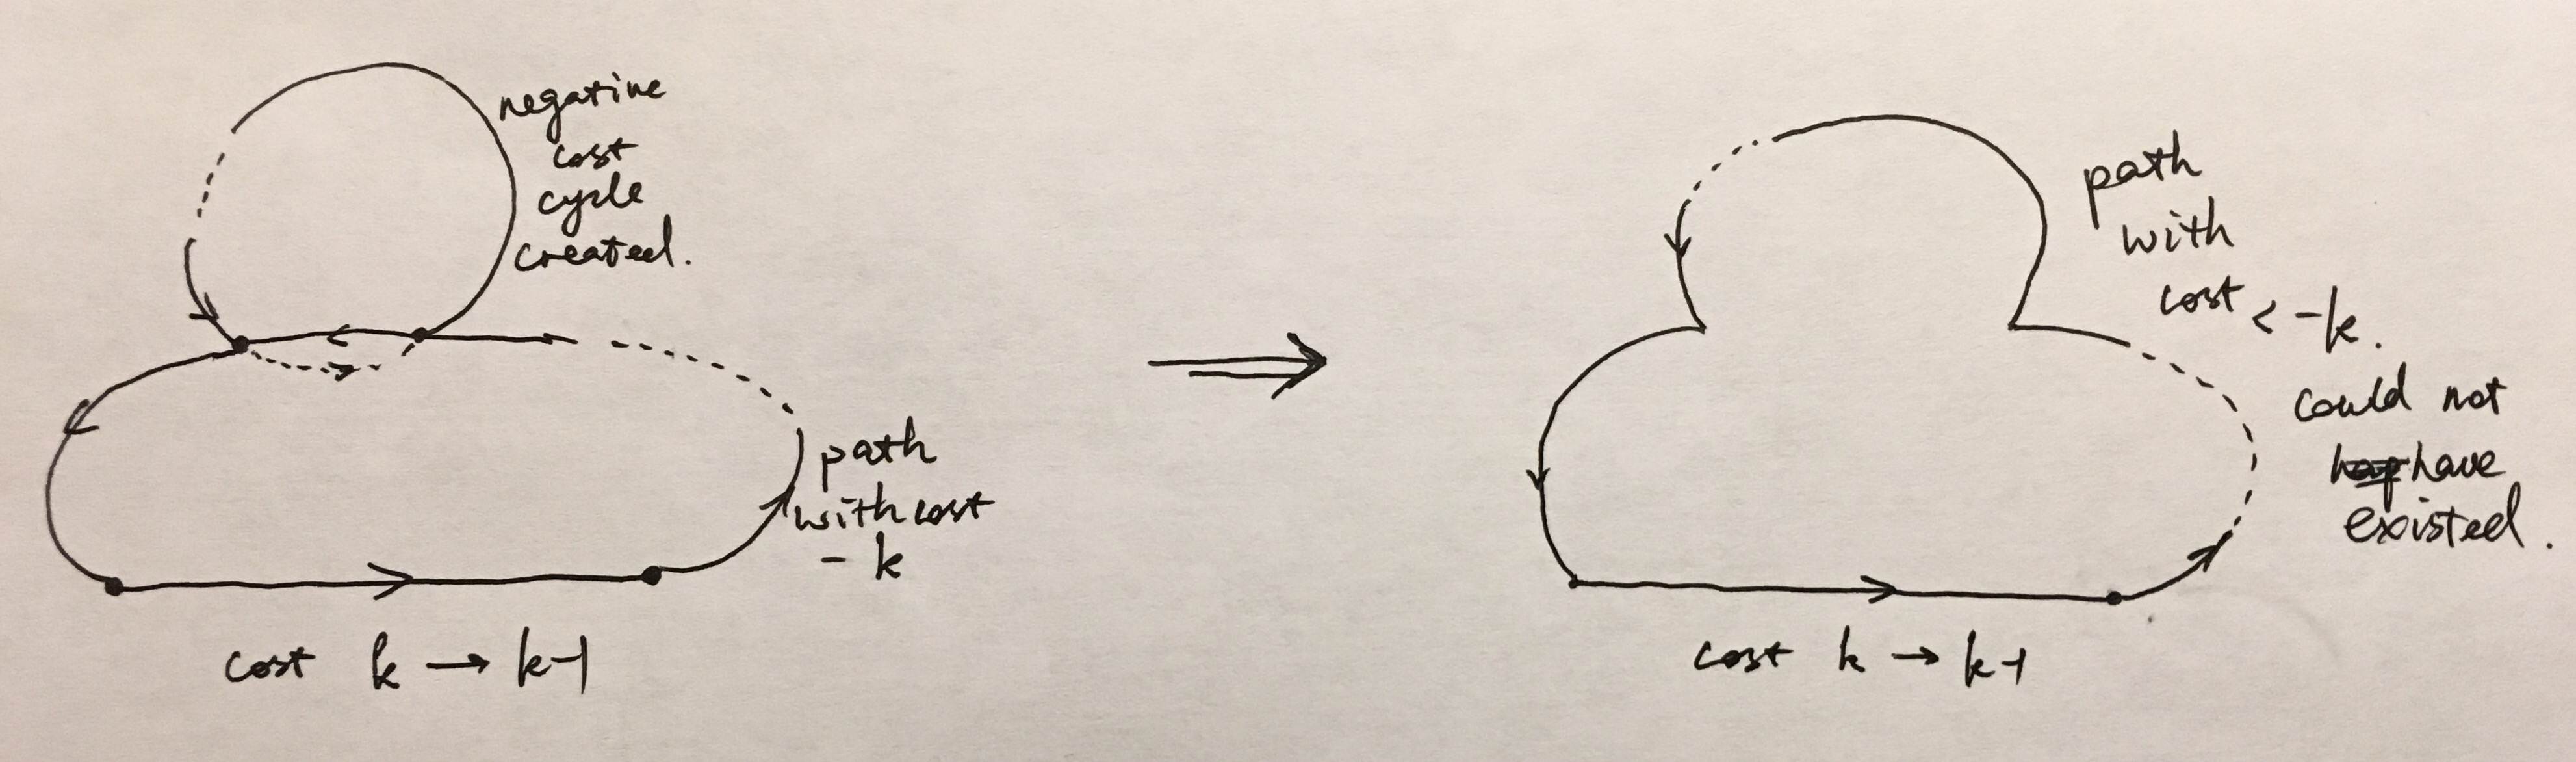 negative
cost
cycle
created.
path
with cost
- k
cost k → k-1
path
with
cost < -k.
could not
have
existed.
cost k → k-1